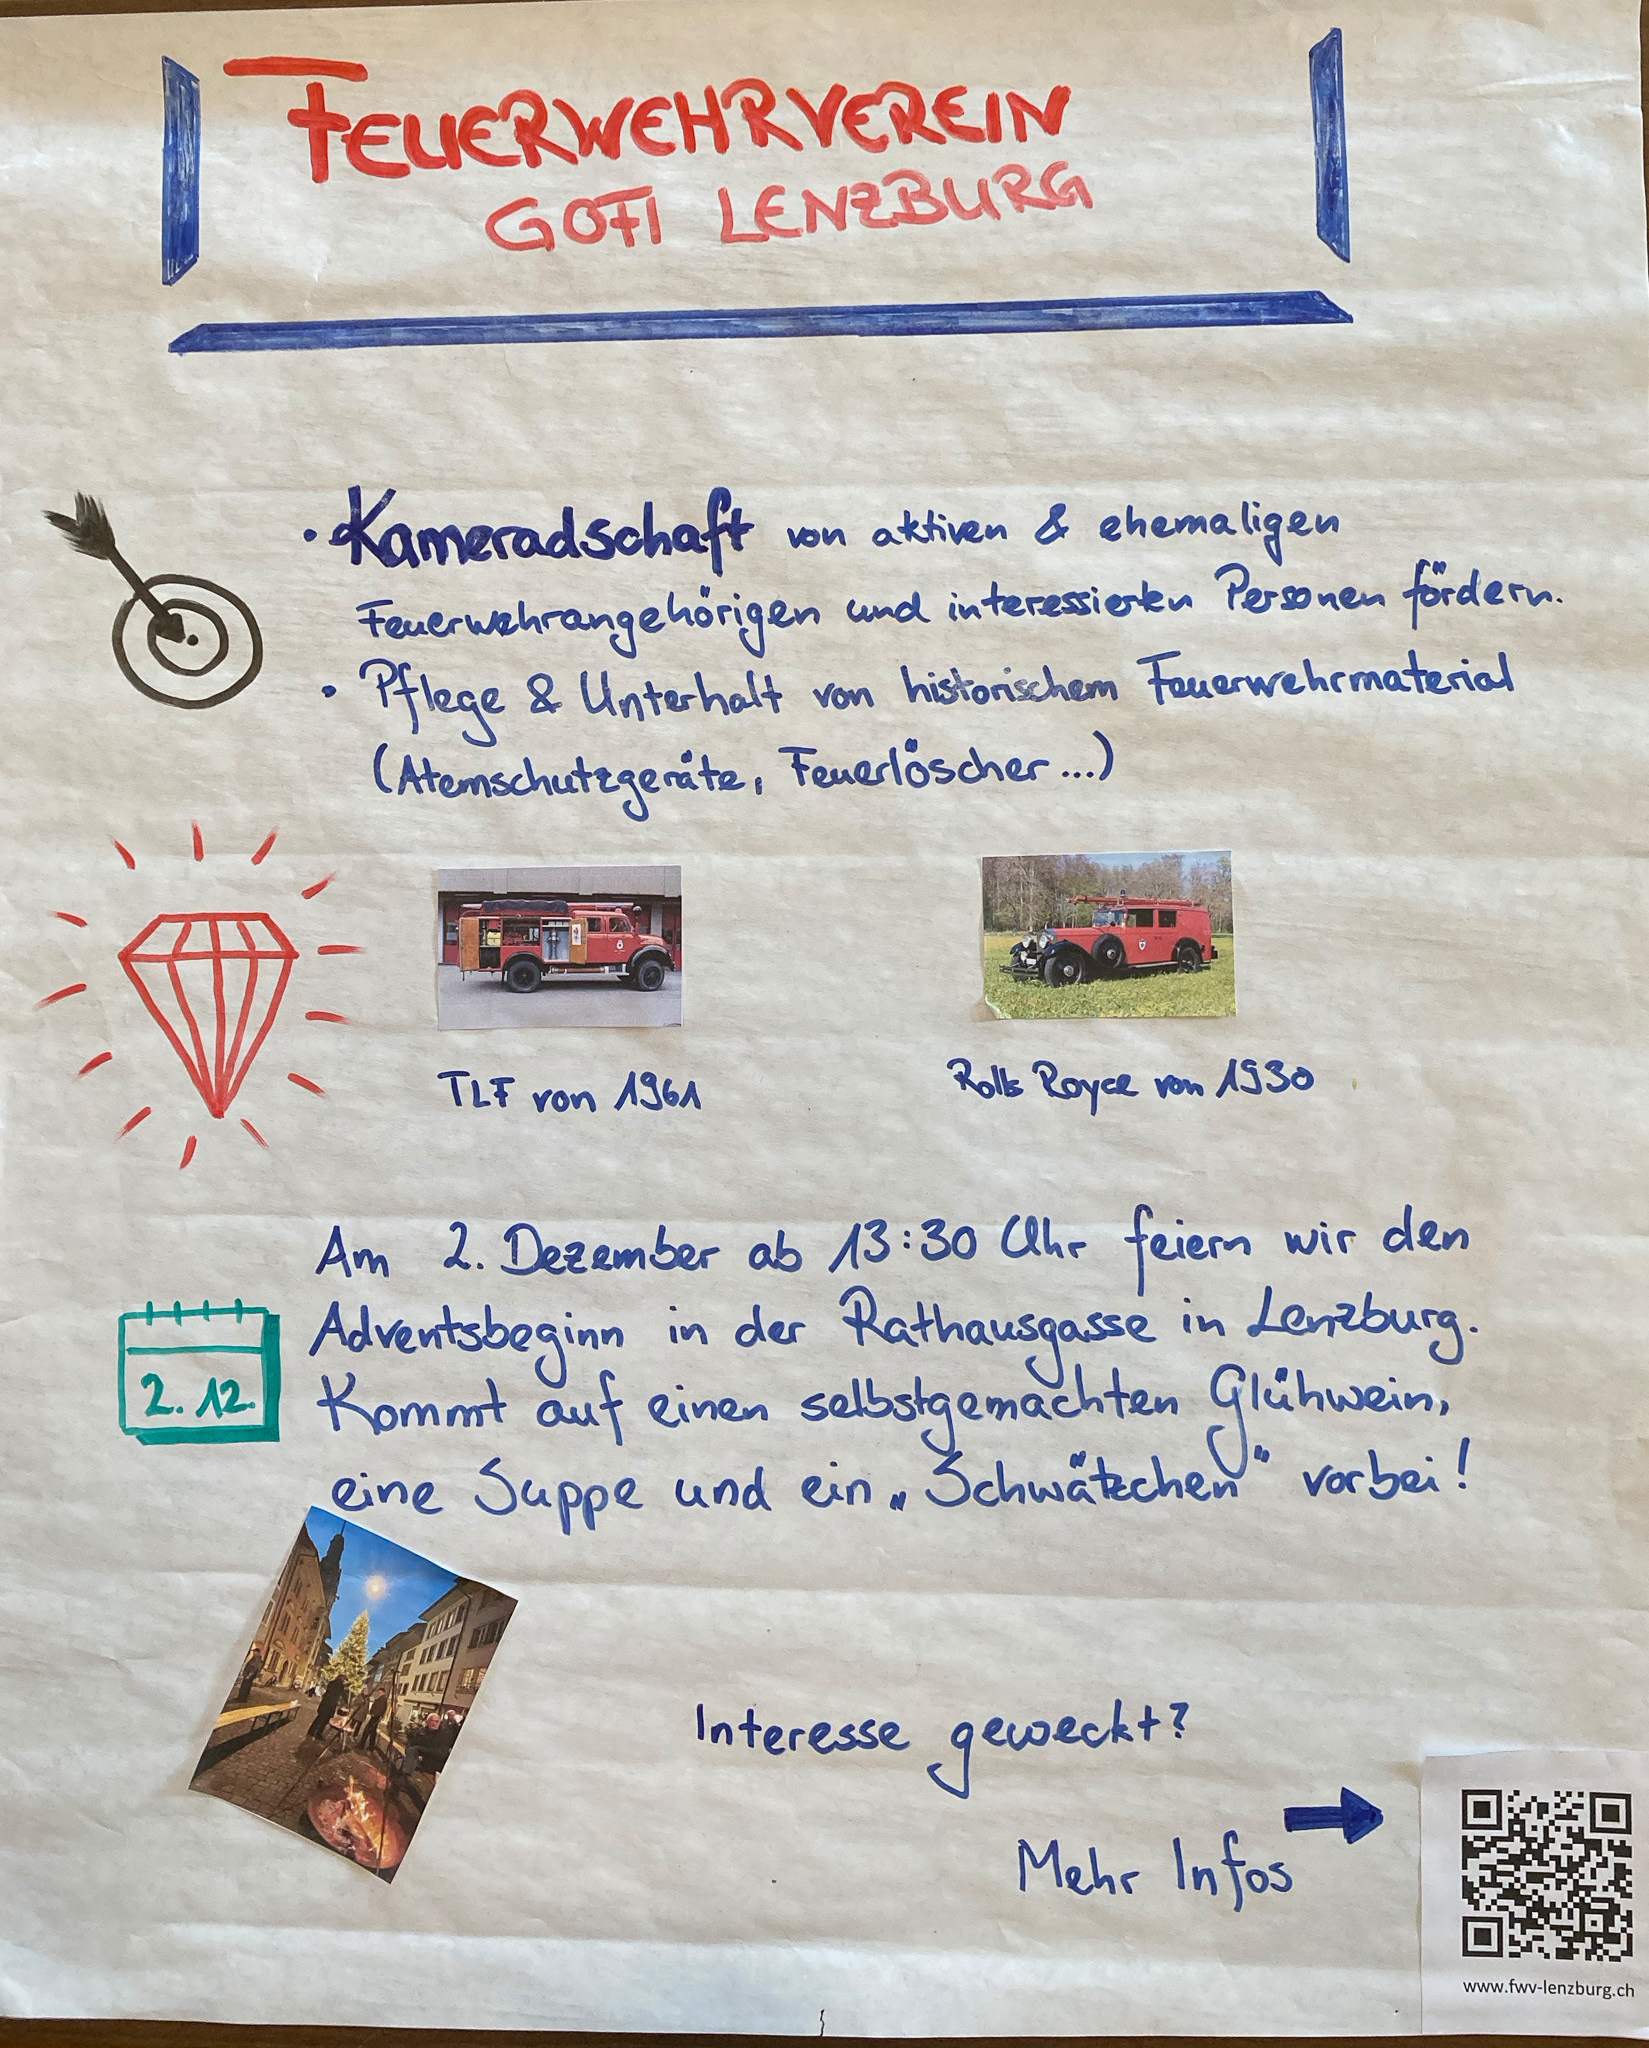 FEUERWEHRVEREIN
GOFI LENZBURG
• Kameradschaft von aktiven & ehemaligen
Feuerwehrangehörigen und interessierten Personen fördern.
• Pflege & Unterhalt von historischem Feuerwehrmaterial
(Atemschutzgeräte, Feuerlöscher...)
TLF von 1961
Rolls Royce von 1930
Am 2. Dezember ab 13:30 Uhr feiern wir den
Adventsbeginn in der Rathausgasse in Lenzburg.
2.12.
Kommt auf einen selbstgemachten Glühwein,
eine Suppe und ein „Schwätzchen" vorbei!
Interesse geweckt?
Mehr Infos
www.fwv-lenzburg.ch